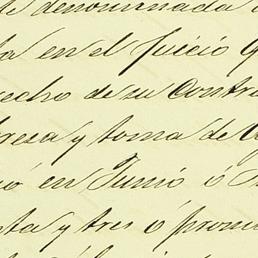 te denominada
ta en el Juicio q
recho de su Contra
y toma de
ó en Junio ó
nta y tres ó prom